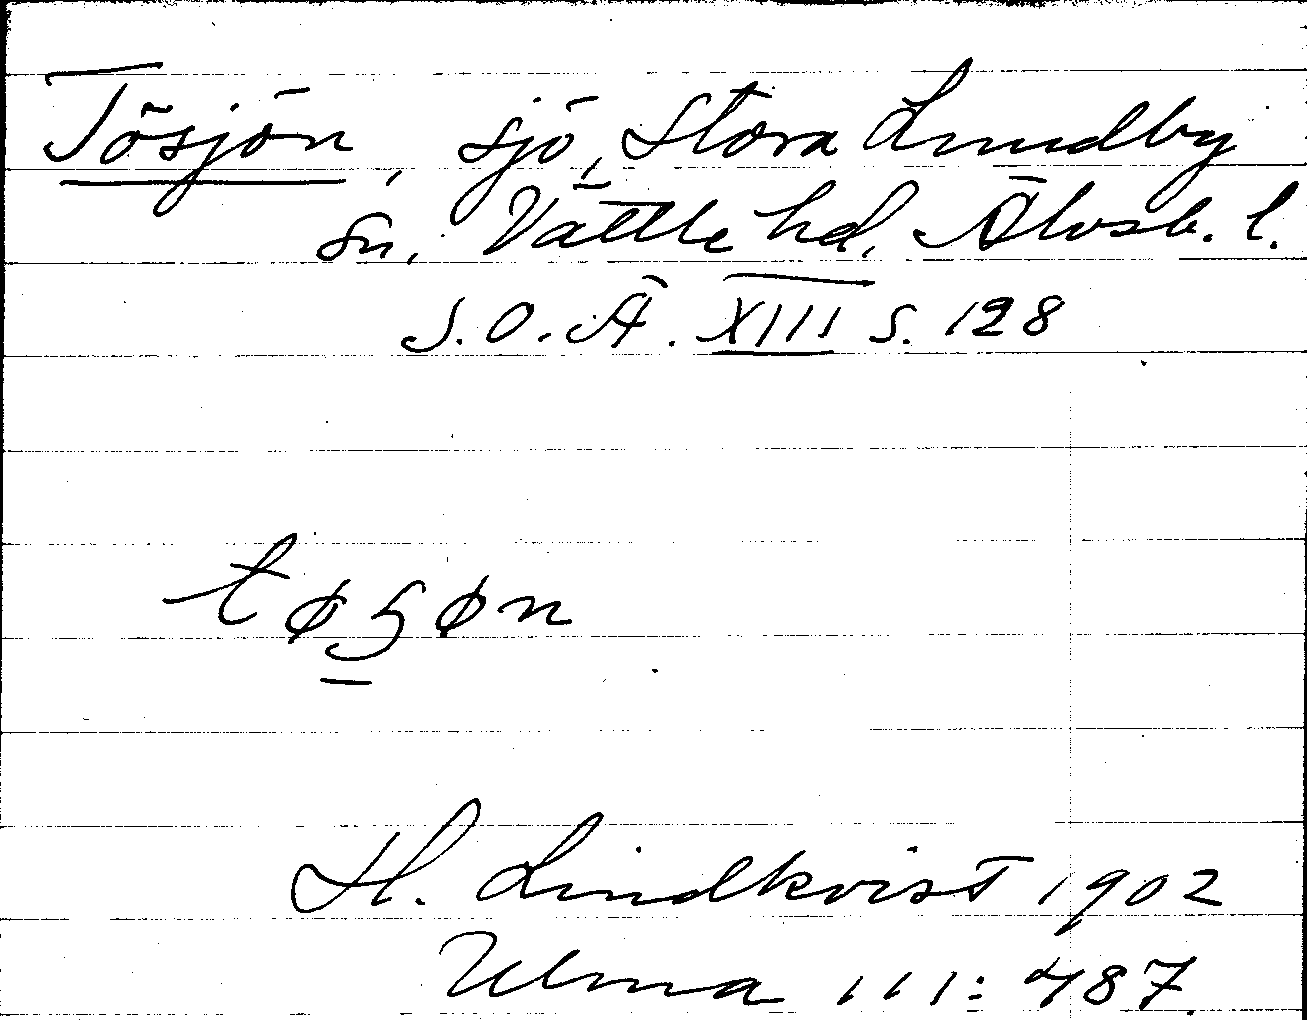 Tösjön, sjö, Stora Lundby
sn, Vättle hd, Älvsb. l.
S.O.Ä. XIII s. 128
tøʂøn
H. Lindkvist 1902
Ulma 111:487